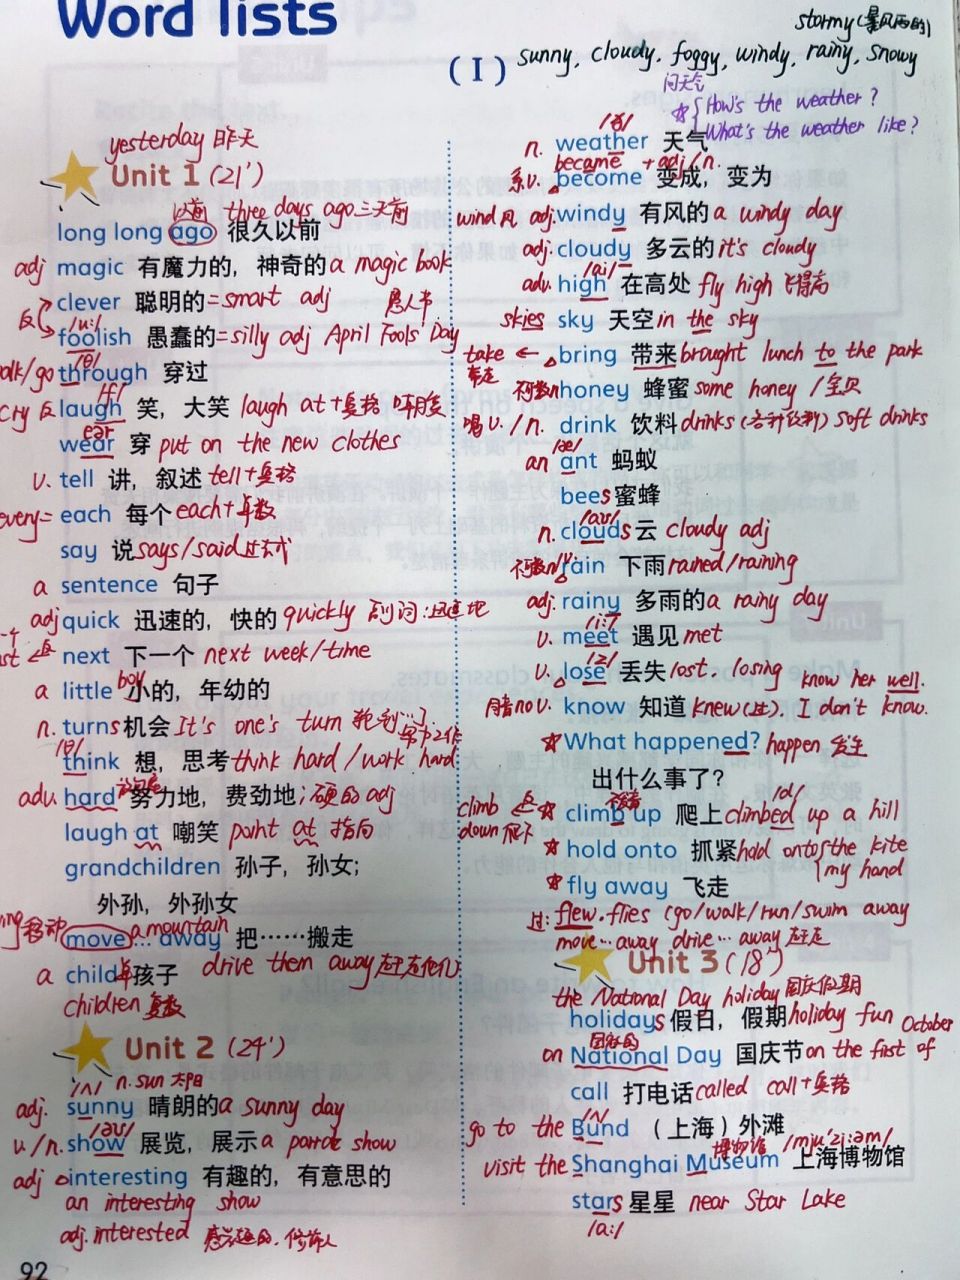 Word lists
stormy(暴风雨的)
(I) sunny, cloudy, foggy, windy, rainy, snowy
yesterday 昨天
Unit 1 (21')
以前 three days ago 三天前
long long ago 很久以前
adj magic 有魔力的，神奇的 a magic book
clever 聪明的 = smart adj 愚人节
反 /uː/
foolish 愚蠢的 = silly adj April Fools' Day
/θ/
through 穿过
/f/
cry 反 laugh 笑，大笑 laugh at + 宾格 嘲笑
ear
wear 穿 put on the new clothes
v. tell 讲，叙述 tell + 宾格
every= each 每个 each + 单数
say 说 says/said 过去式
a sentence 句子
adj quick 迅速的，快的 quickly 副词:迅速地
反 next 下一个 next week/time
boy
a little 小的，年幼的
n. turns 机会 It's one's turn 轮到……
/θ/
think 想，思考 think hard / work hard
adv. hard 努力地，费劲地; 硬的 adj
laugh at 嘲笑 point at 指向
grandchildren 孙子，孙女;
外孙，外孙女
a mountain
移动 move ... away 把……搬走
a child 单 孩子 drive them away 赶走他们
children 复数
Unit 2 (24')
/ʌ/ n. sun 太阳
adj. sunny 晴朗的 a sunny day
/əʊ/
v./n. show 展览，展示 a parrot show
adj interesting 有趣的，有意思的
an interesting show
adj. interested 感兴趣的，修饰人
92
问天气
How's the weather?
What's the weather like?
/ð/
n. weather 天气
became + adj/n.
系v. become 变成，变为
wind 风 adj. windy 有风的 a windy day
adj. cloudy 多云的 it's cloudy
/ai/
adv. high 在高处 fly high 飞得高
skies sky 天空 in the sky
take ← bring 带来 brought lunch to the park
带走
不可数n honey 蜂蜜 some honey / 宝贝
喝 v./n. drink 饮料 drinks soft drinks
/æ/
an ant 蚂蚁
bees 蜜蜂
/aʊ/
n. clouds 云 cloudy adj
不可数n/v rain 下雨 rained/raining
adj. rainy 多雨的 a rainy day
/iː/
v. meet 遇见 met
/z/
v. lose 丢失 lost, losing
know her well.
同音 no v. know 知道 knew(过), I don't know.
What happened? happen 发生
出什么事了?
不发音 /d/
climb down 爬下 反 climb up 爬上 climbed up a hill
hold onto 抓紧 hold onto the kite
my hand
fly away 飞走
过: flew. flies (go/walk/run/swim away
move…away drive…away 赶走
Unit 3 (18')
the National Day holiday 国庆假期
holidays 假日，假期 holiday fun
国家的
on National Day 国庆节 on the first of October
call 打电话 called call + 宾格
/ʌ/
go to the Bund （上海）外滩
博物馆 /mju'ziːəm/
visit the Shanghai Museum 上海博物馆
stars 星星 near Star Lake
/aː/